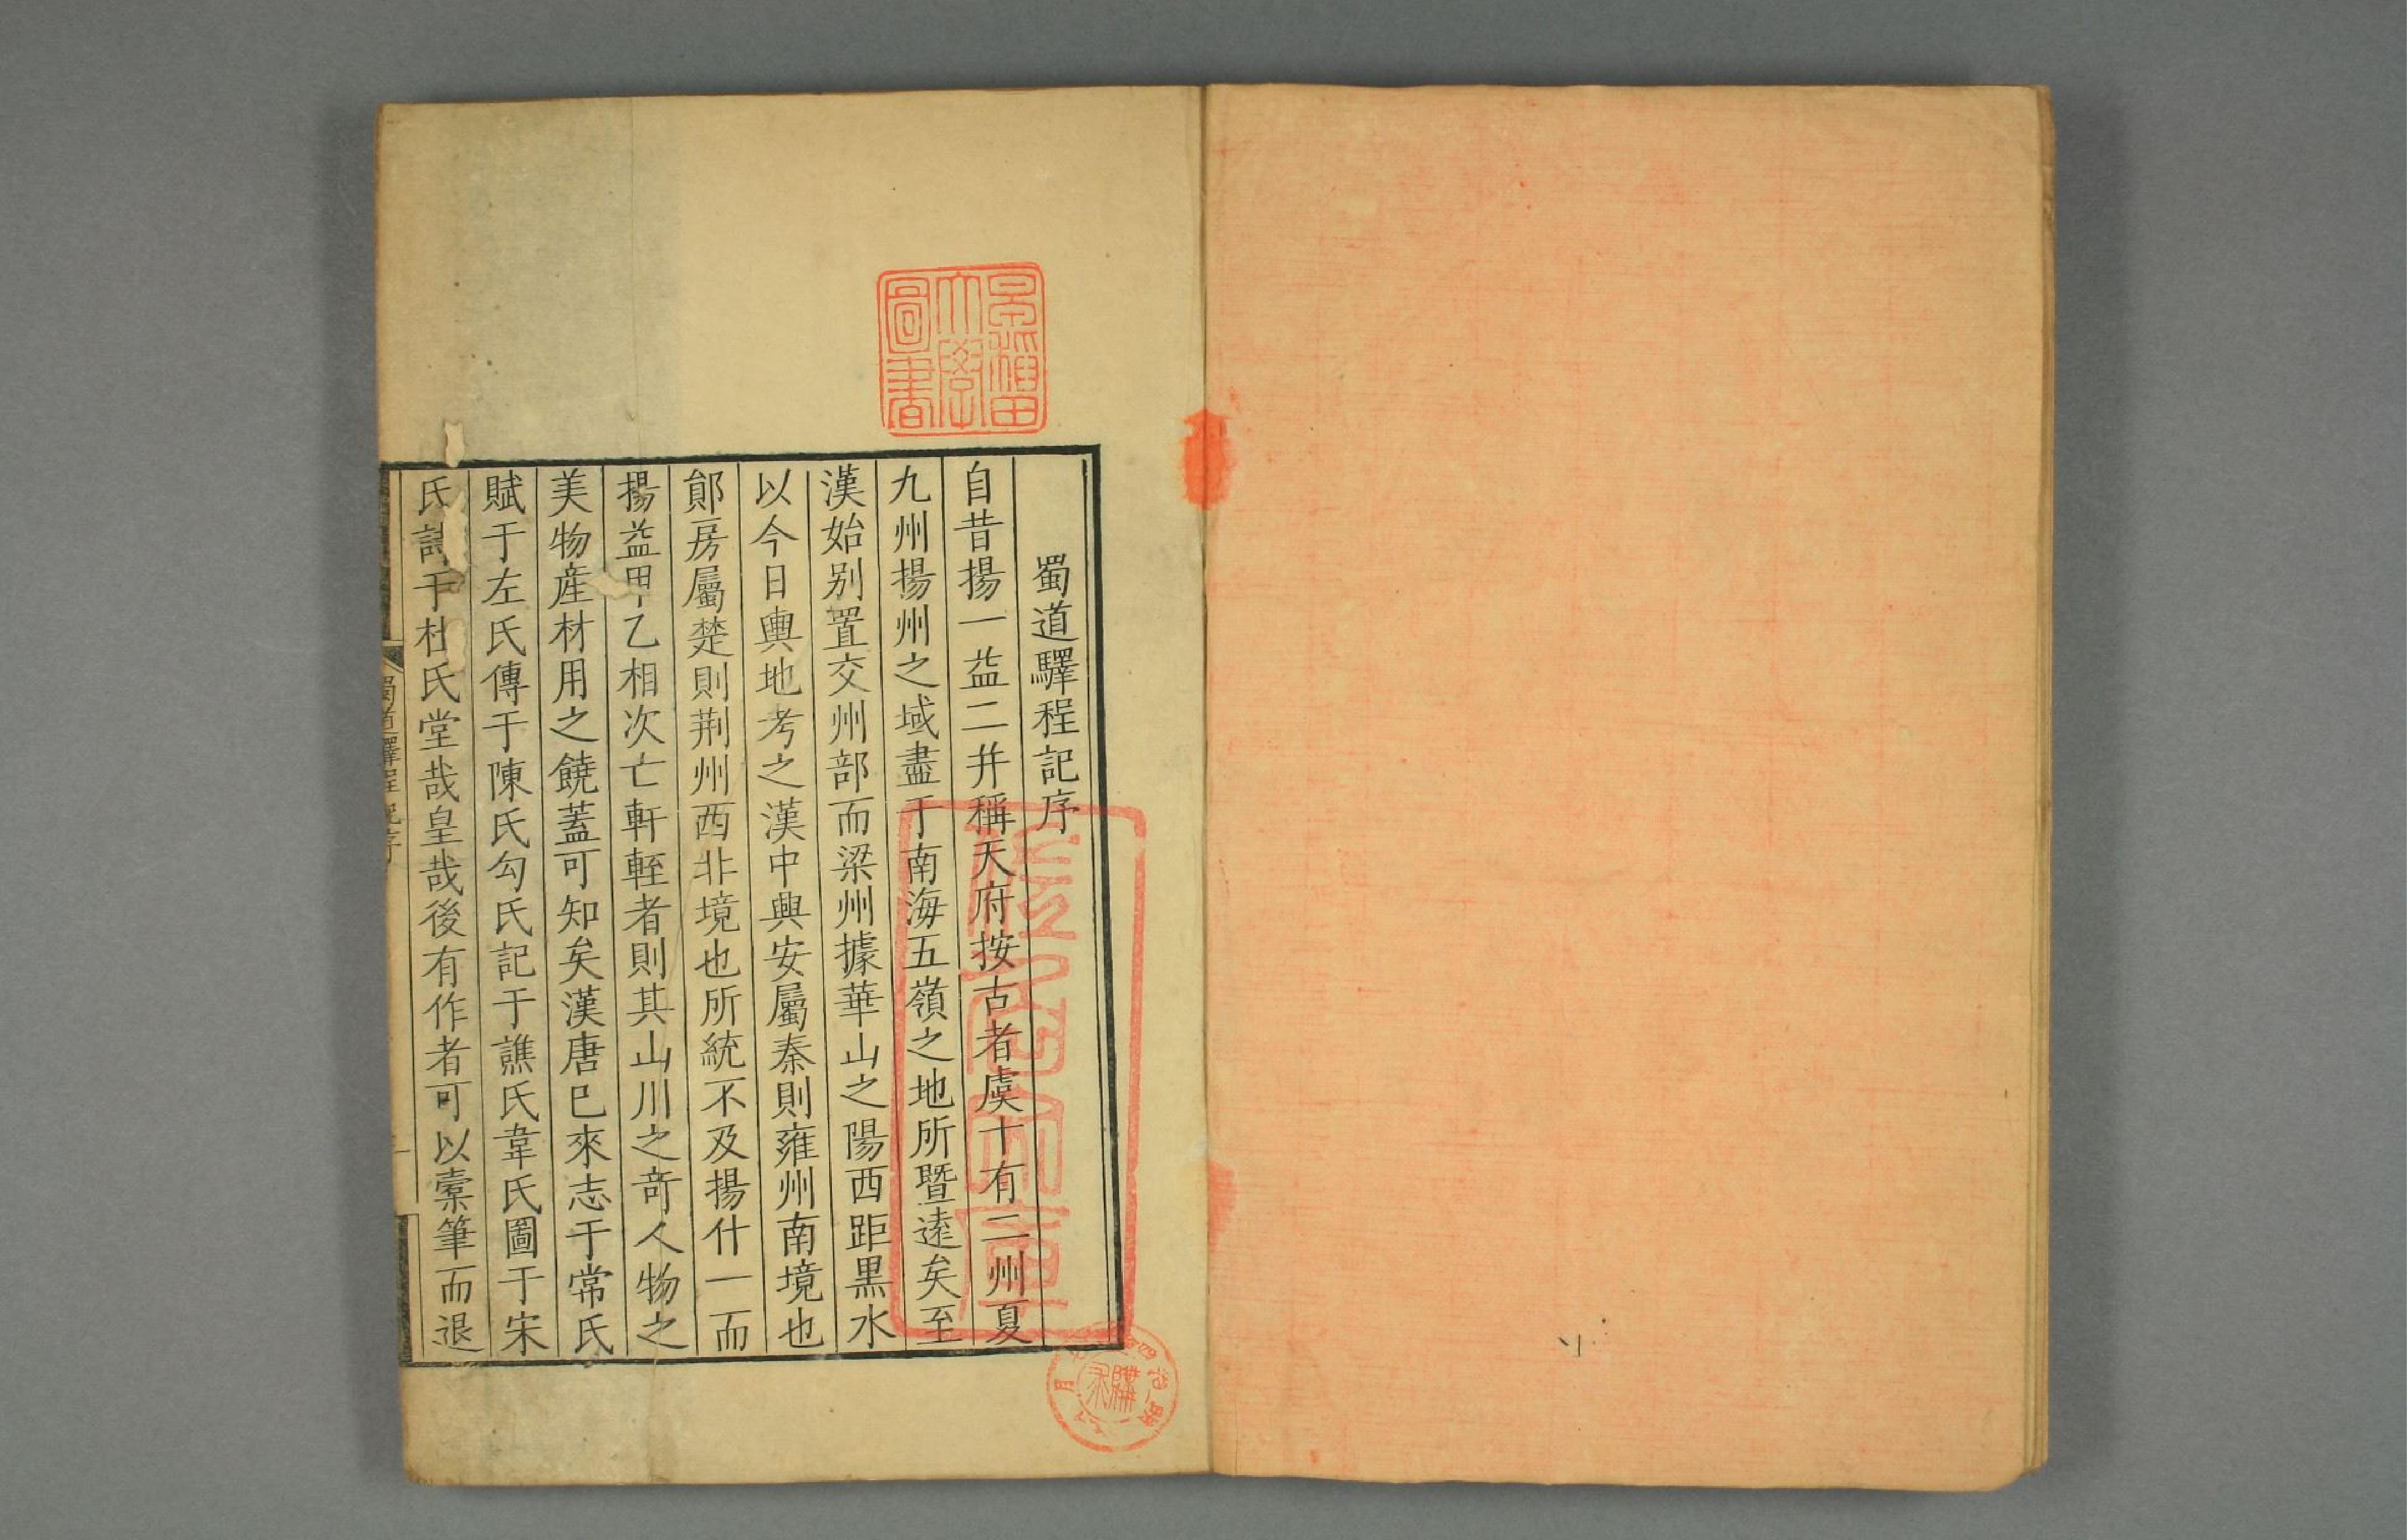 蜀道驛程記序
自昔揚一益二并稱天府按古者虞十有二州夏
九州揚州之域盡于南海五嶺之地所暨逺矣至
漢始别置交州部而梁州據華山之陽西距黒水
以今日輿地考之漢中興安屬秦則雍州南境也
鄖房屬楚則荆州西非境也所統不及揚什一而
揚益甲乙相次亡軒輊者則其山川之竒人物之
美物産材用之饒蓋可知矣漢唐巳來志于常氏
賦于左氏傳于陳氏勾氏記于譙氏韋氏圖于宋
氏于杜氏堂哉皇哉後有作者可以槖筆而退
蜀道驛程記序
早稲田大學圖書
購求